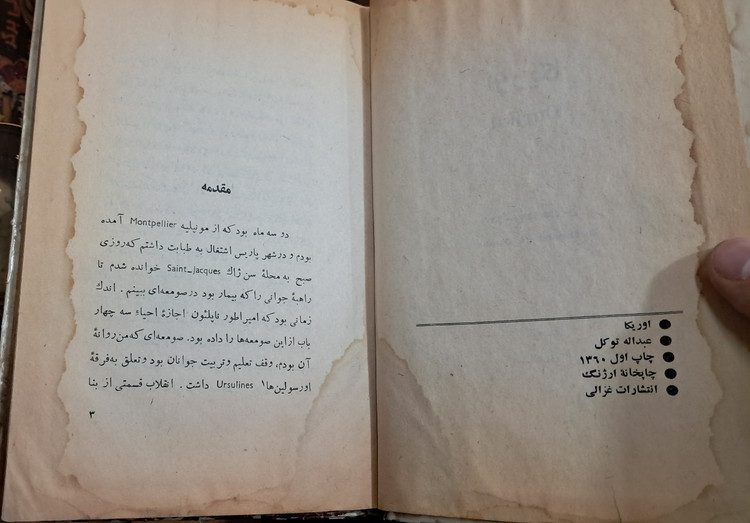 اوریکا
عبداله توکل
چاپ اول ۱۳۶۰
چاپخانهٔ ارژنگ
انتشارات غزالی
مقدمه
دو سه ماه بود که از مونپلیه Montpellier آمده
بودم و در شهر پاریس اشتغال به طبابت داشتم که روزی
صبح به محلهٔ سن ژاك Saint-Jacques خوانده شدم تا
راهبهٔ جوانی را که بیمار بود در صومعه‌ای ببینم . اندك
زمانی بود که امپراطور ناپلئون اجازهٔ احیاء سه چهار
باب از این صومعه‌ها را داده بود. صومعه‌ای که من روانهٔ
آن بودم، وقف تعلیم و تربیت جوانان بود و تعلق به فرقهٔ
اورسولین‌ها۱ Ursulines داشت . انقلاب قسمتی از بنا
۳